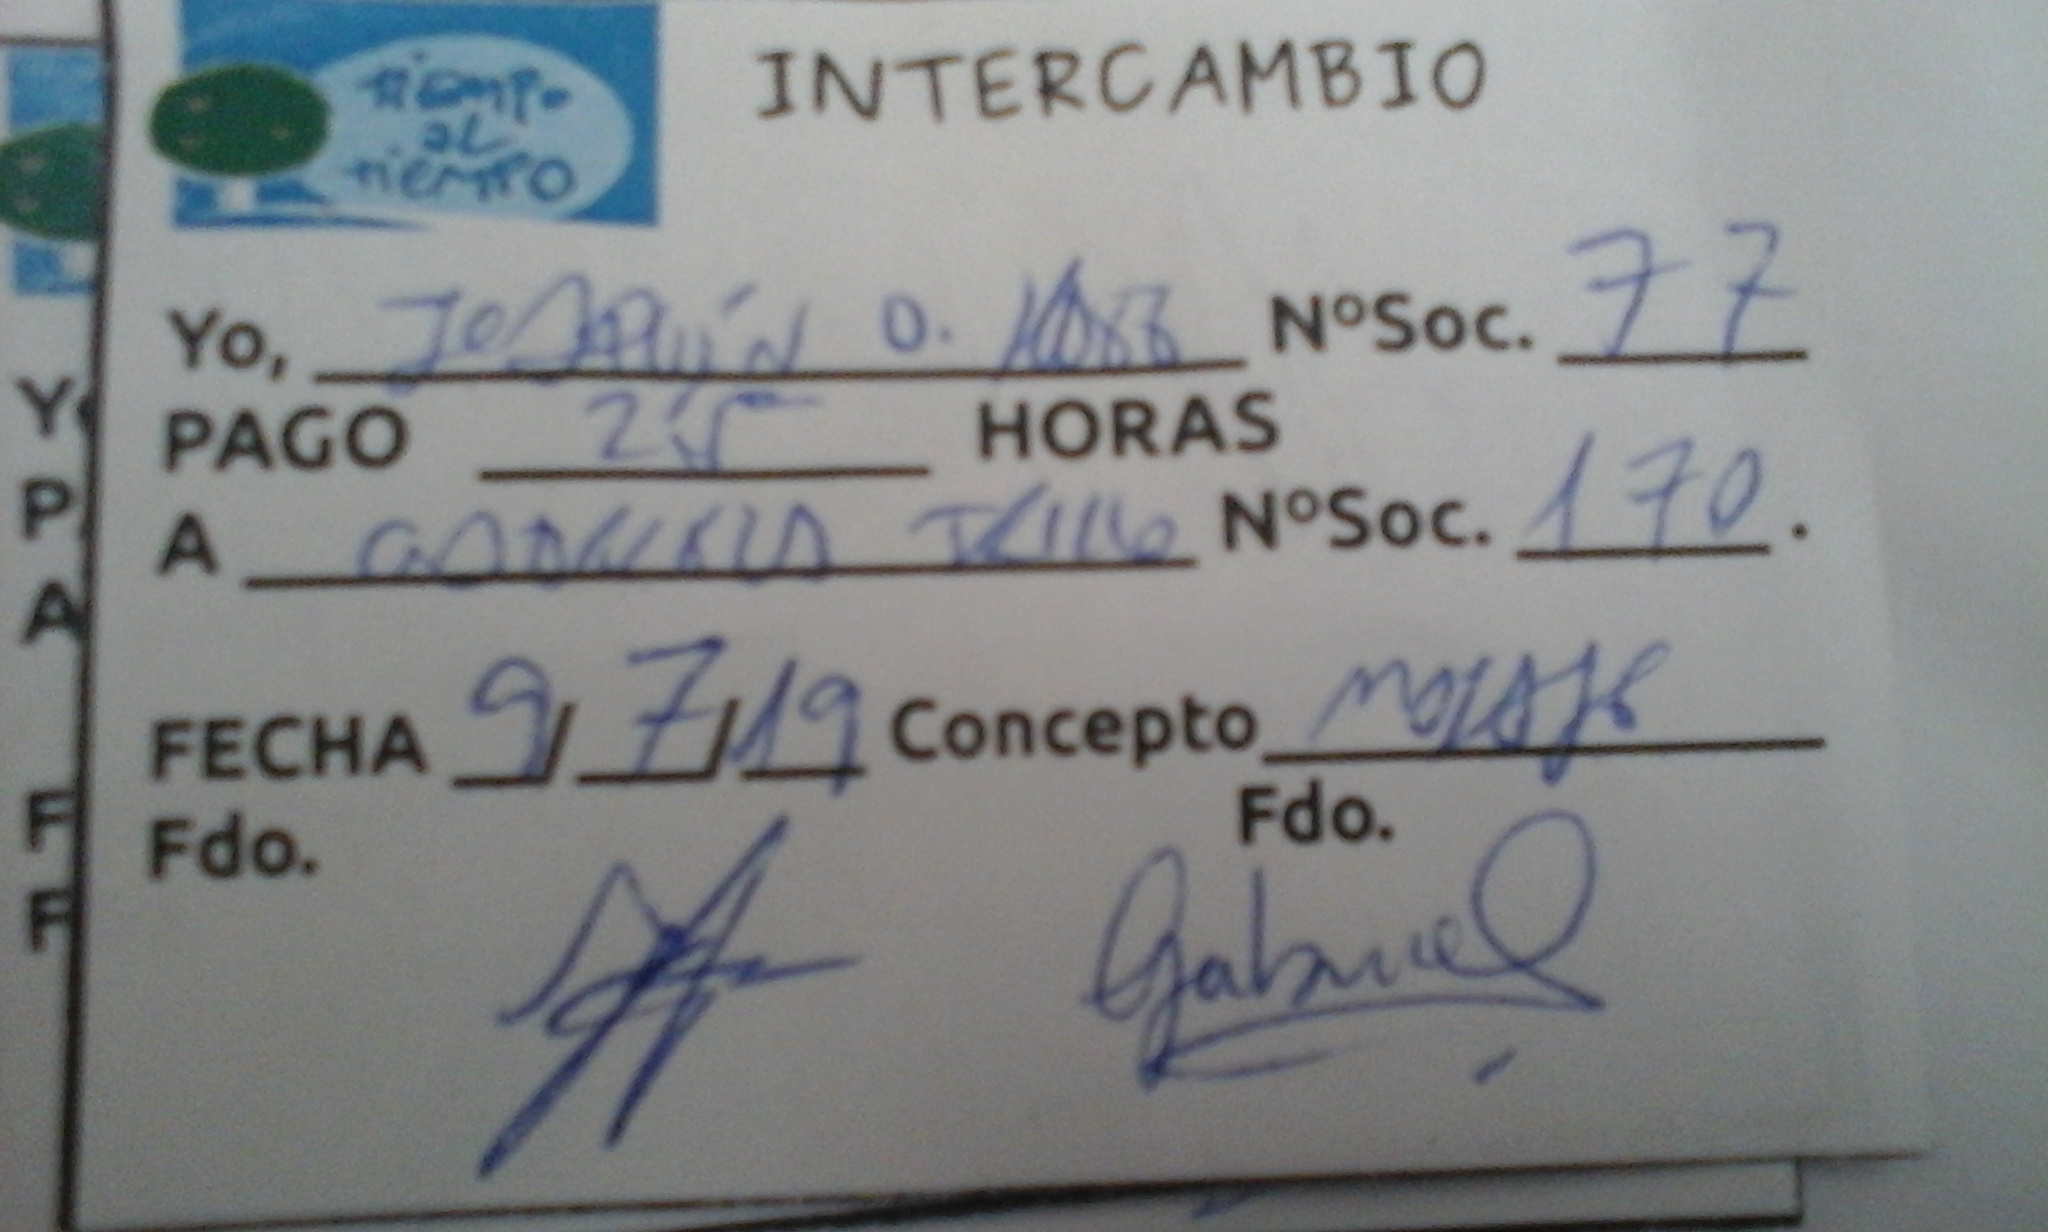 tiempo
al
tiempo
INTERCAMBIO
Yo, JOAQUÍN O. NºSoc. 77
PAGO 2'5 HORAS
A NºSoc. 170.
FECHA 9/7/19 Concepto
Fdo. Fdo.
Gabriel
Y
P
A
F
F